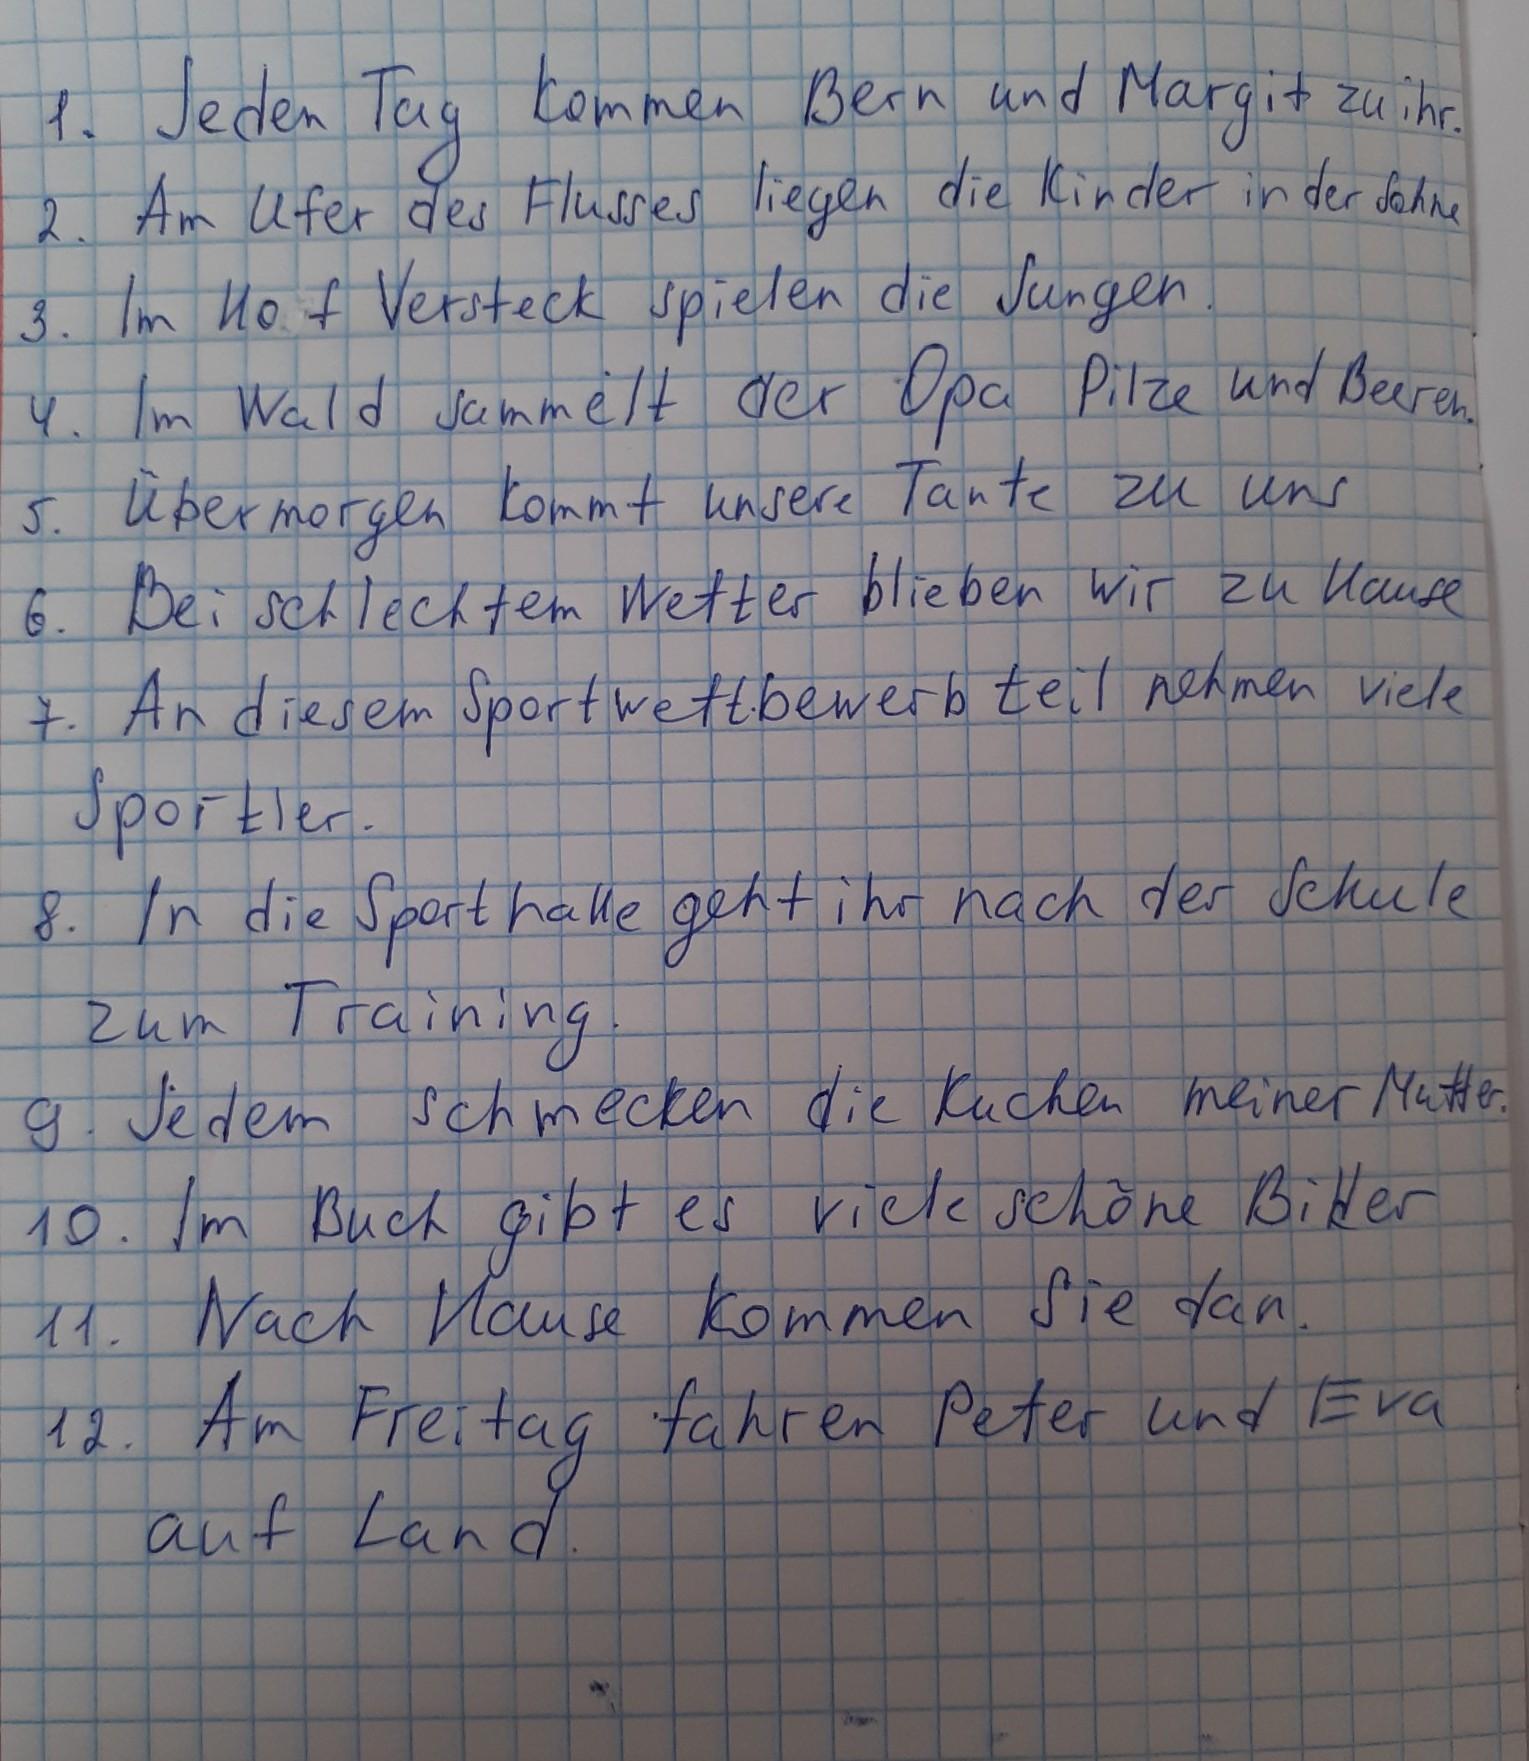 1. Jeden Tag kommen Bern und Margit zu ihr.
2. Am Ufer des Flusses liegen die Kinder in der Sohne
3. Im Hof Versteck spielen die Jungen.
4. Im Wald sammelt der Opa Pilze und Beeren.
5. Übermorgen kommt unsere Tante zu uns
6. Bei schlechtem Wetter blieben wir zu Hause
7. An diesem Sportwettbewerb teil nehmen viele
Sportler.
8. In die Sporthalle geht ihr nach der Schule
zum Training.
9. Jedem schmecken die Kuchen meiner Mutter.
10. Im Buch gibt es viele schöne Bilder
11. Nach Hause kommen Sie dan.
12. Am Freitag fahren Peter und Eva
auf Land.